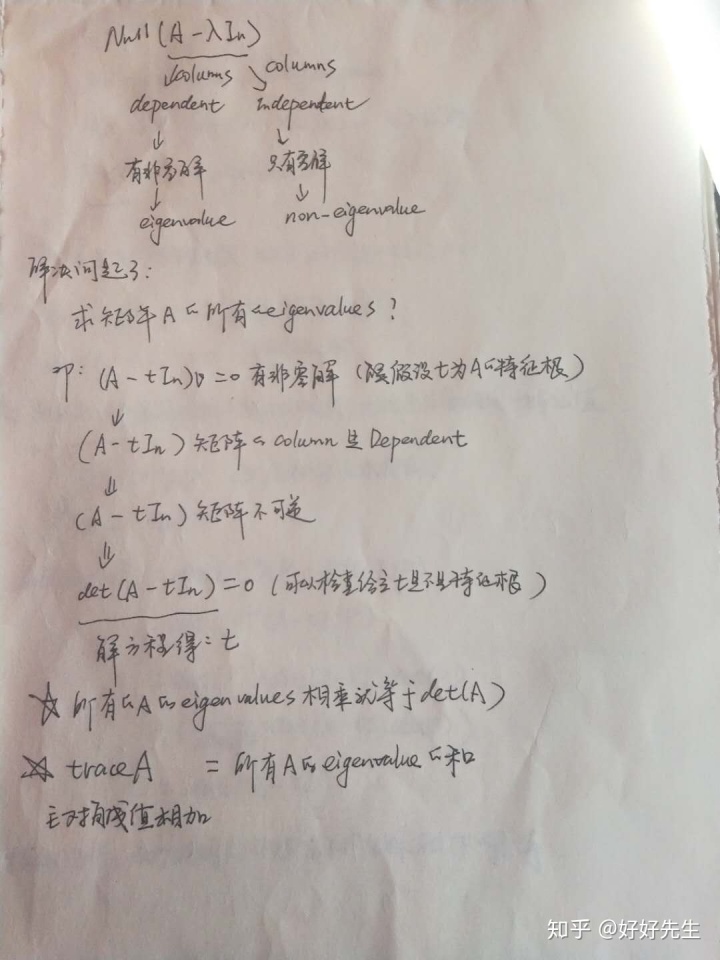 Null(A-λIn)
↓columns ↘columns
dependent independent
↓ ↓
有非零解 只有零解
↓ ↓
eigenvalue non-eigenvalue
解决问题了:
求矩阵A的所有的eigenvalues?
即: (A-tIn)v=0有非零解 (假设t为A的特征根)
↓
(A-tIn)矩阵的column是Dependent
⇓
(A-tIn)矩阵不可逆
⇓
det(A-tIn)=0 (可以检查给定t是不是特征根)
解方程得:t
☆所有的A的eigenvalues相乘就等于det(A)
☆ traceA = 所有A的eigenvalue的和
主对角线值相加
知乎 @好好先生